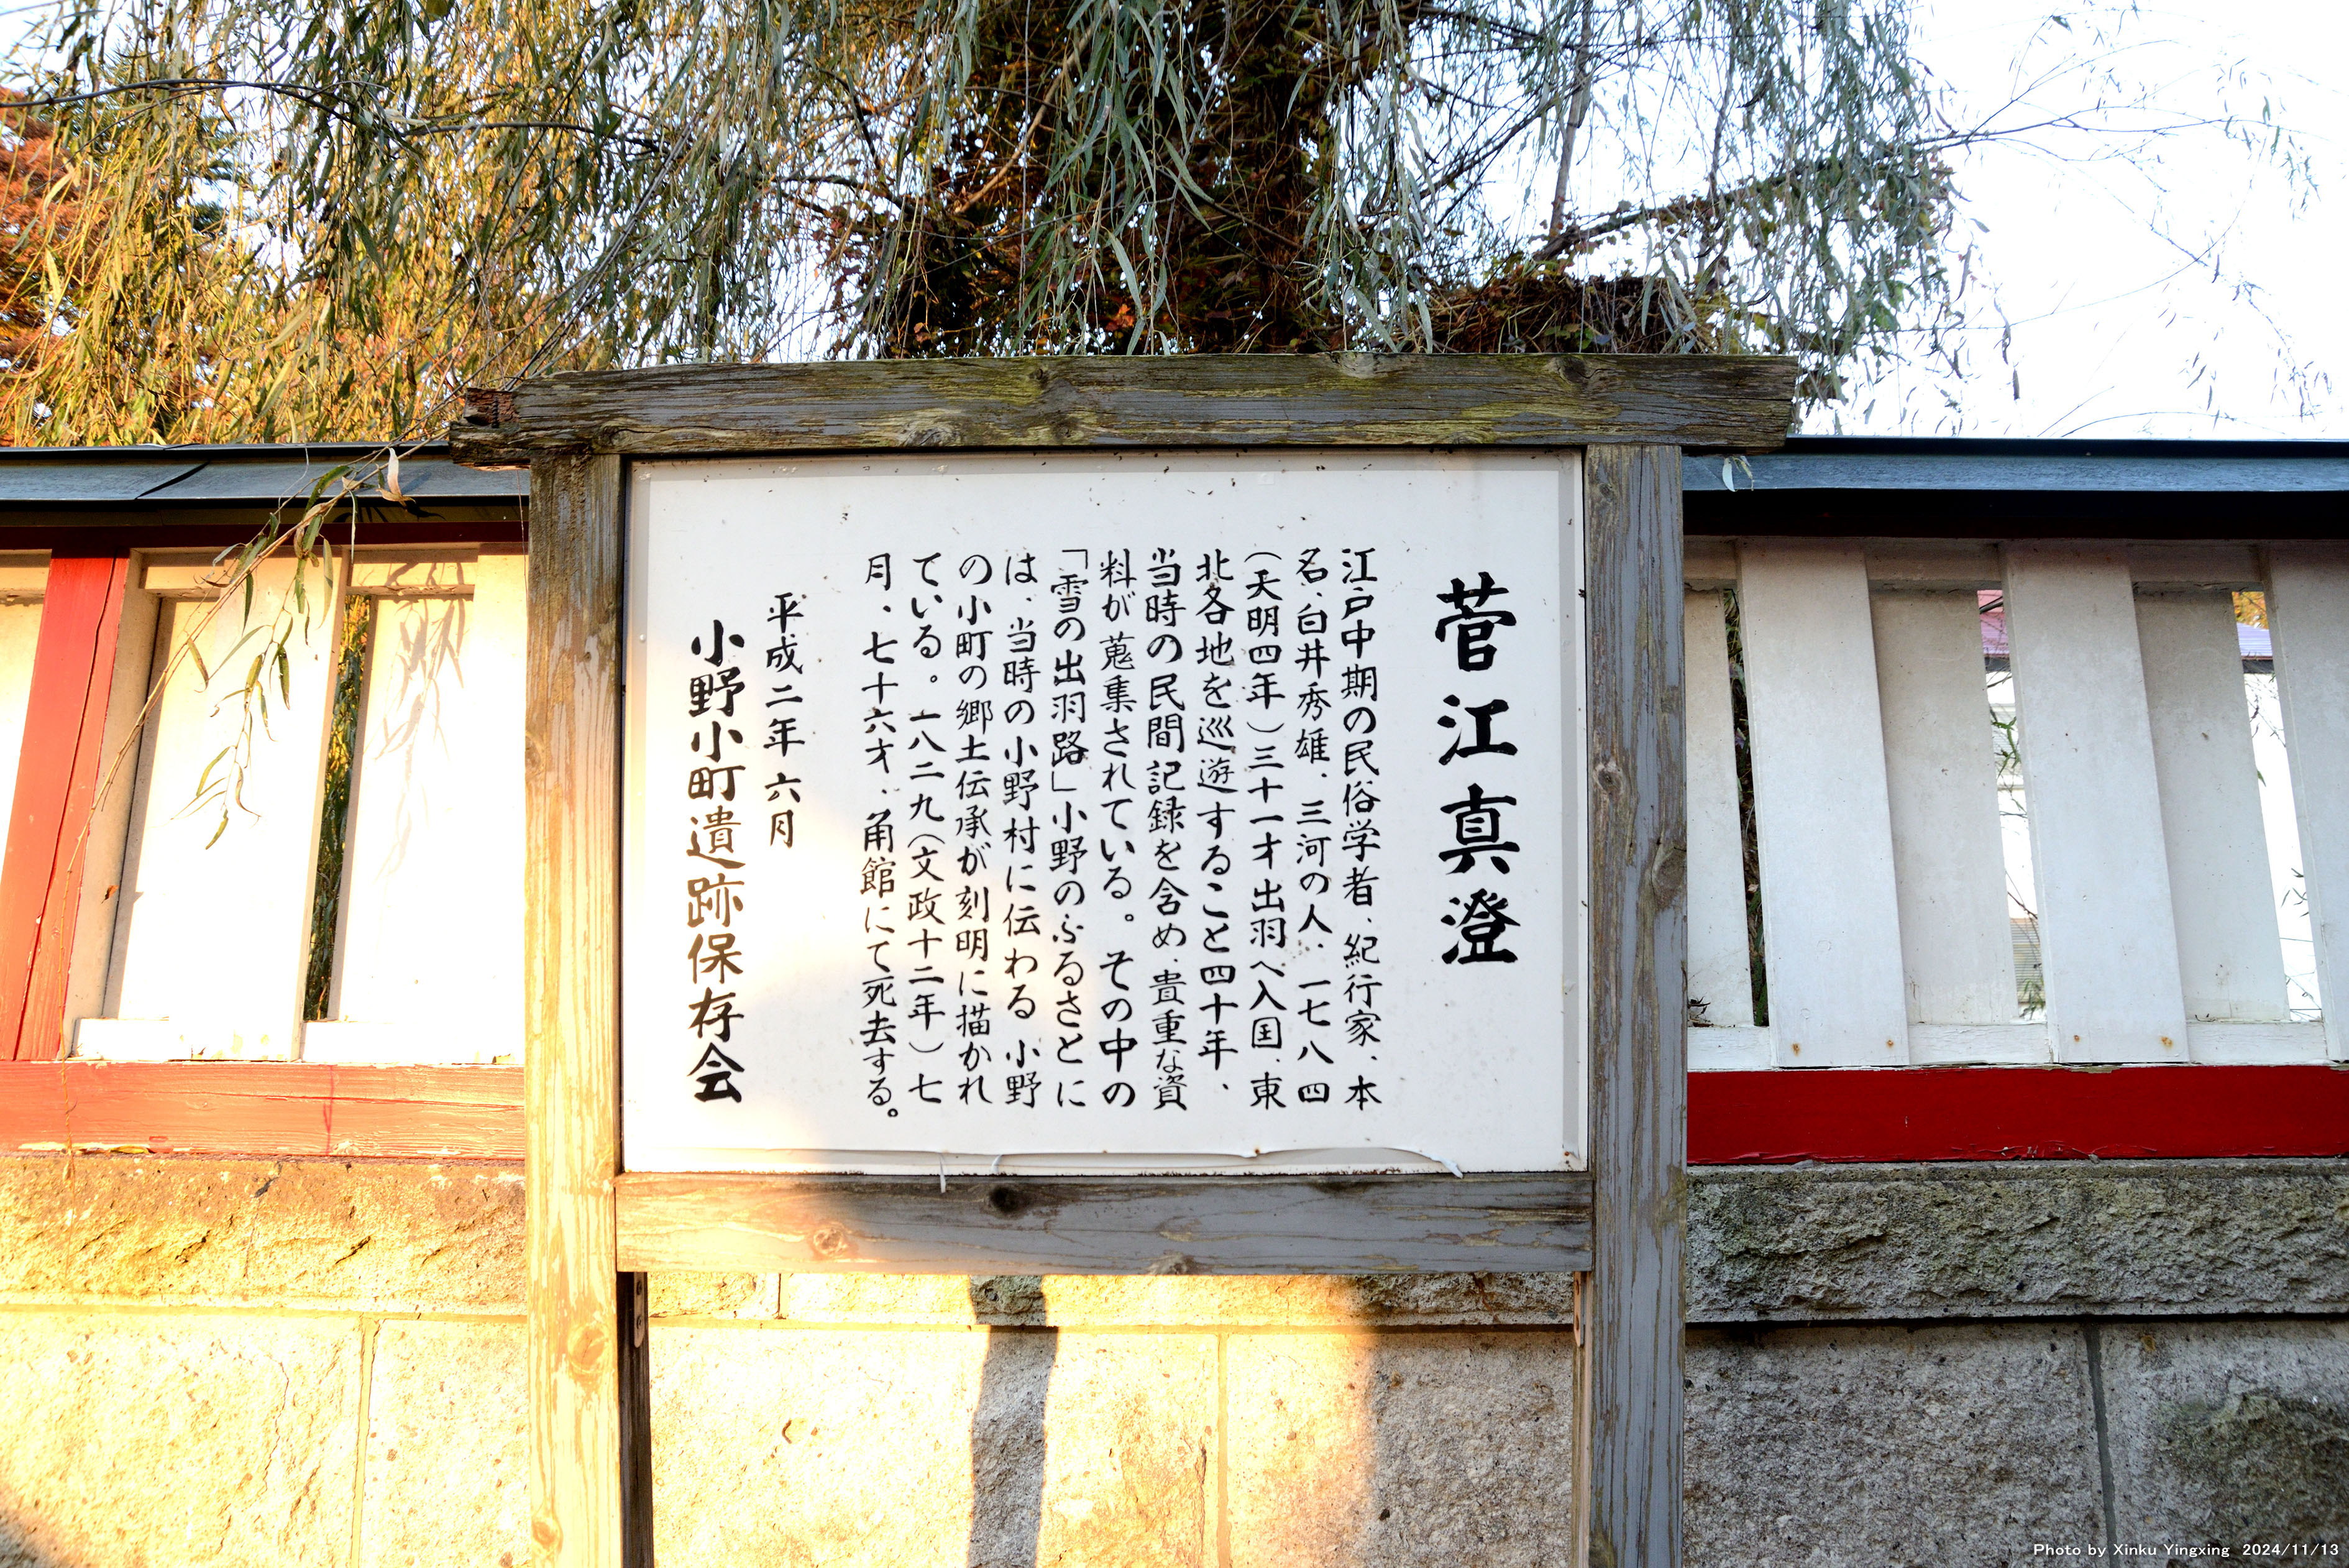 菅江真澄
江戸中期の民俗学者、紀行家、本
名、白井秀雄、三河の人、一七八四
（天明四年）三十一才出羽へ入国、東
北各地を巡遊すること四十年、
当時の民間記録を含め、貴重な資
料が蒐集されている。その中の
「雪の出羽路」小野のふるさとに
は、当時の小野村に伝わる小野
の小町の郷土伝承が刻明に描かれ
ている。一八二九（文政十二年）七
月、七十六才、角館にて死去する。
平成二年六月
小野小町遺跡保存会
Photo by Xinku Yingxing 2024/11/13